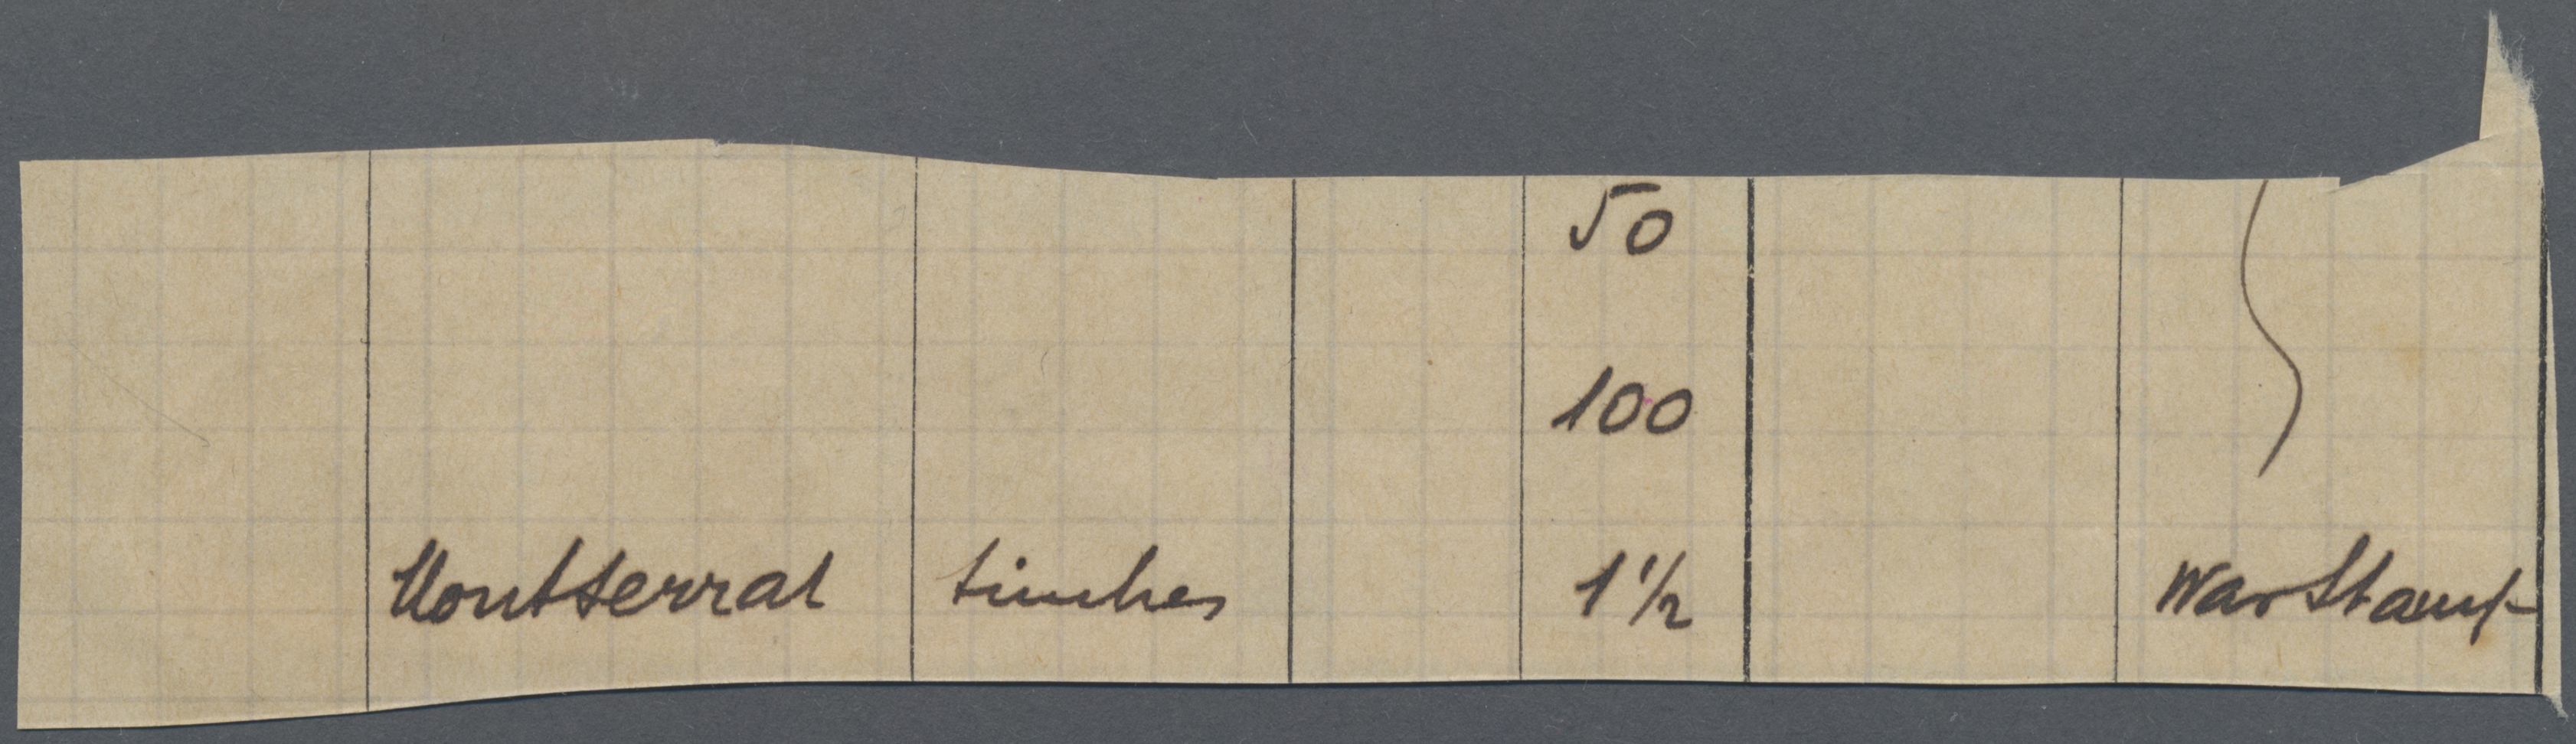 50
100
Montserrat timbres 1 1/2 War Stamp